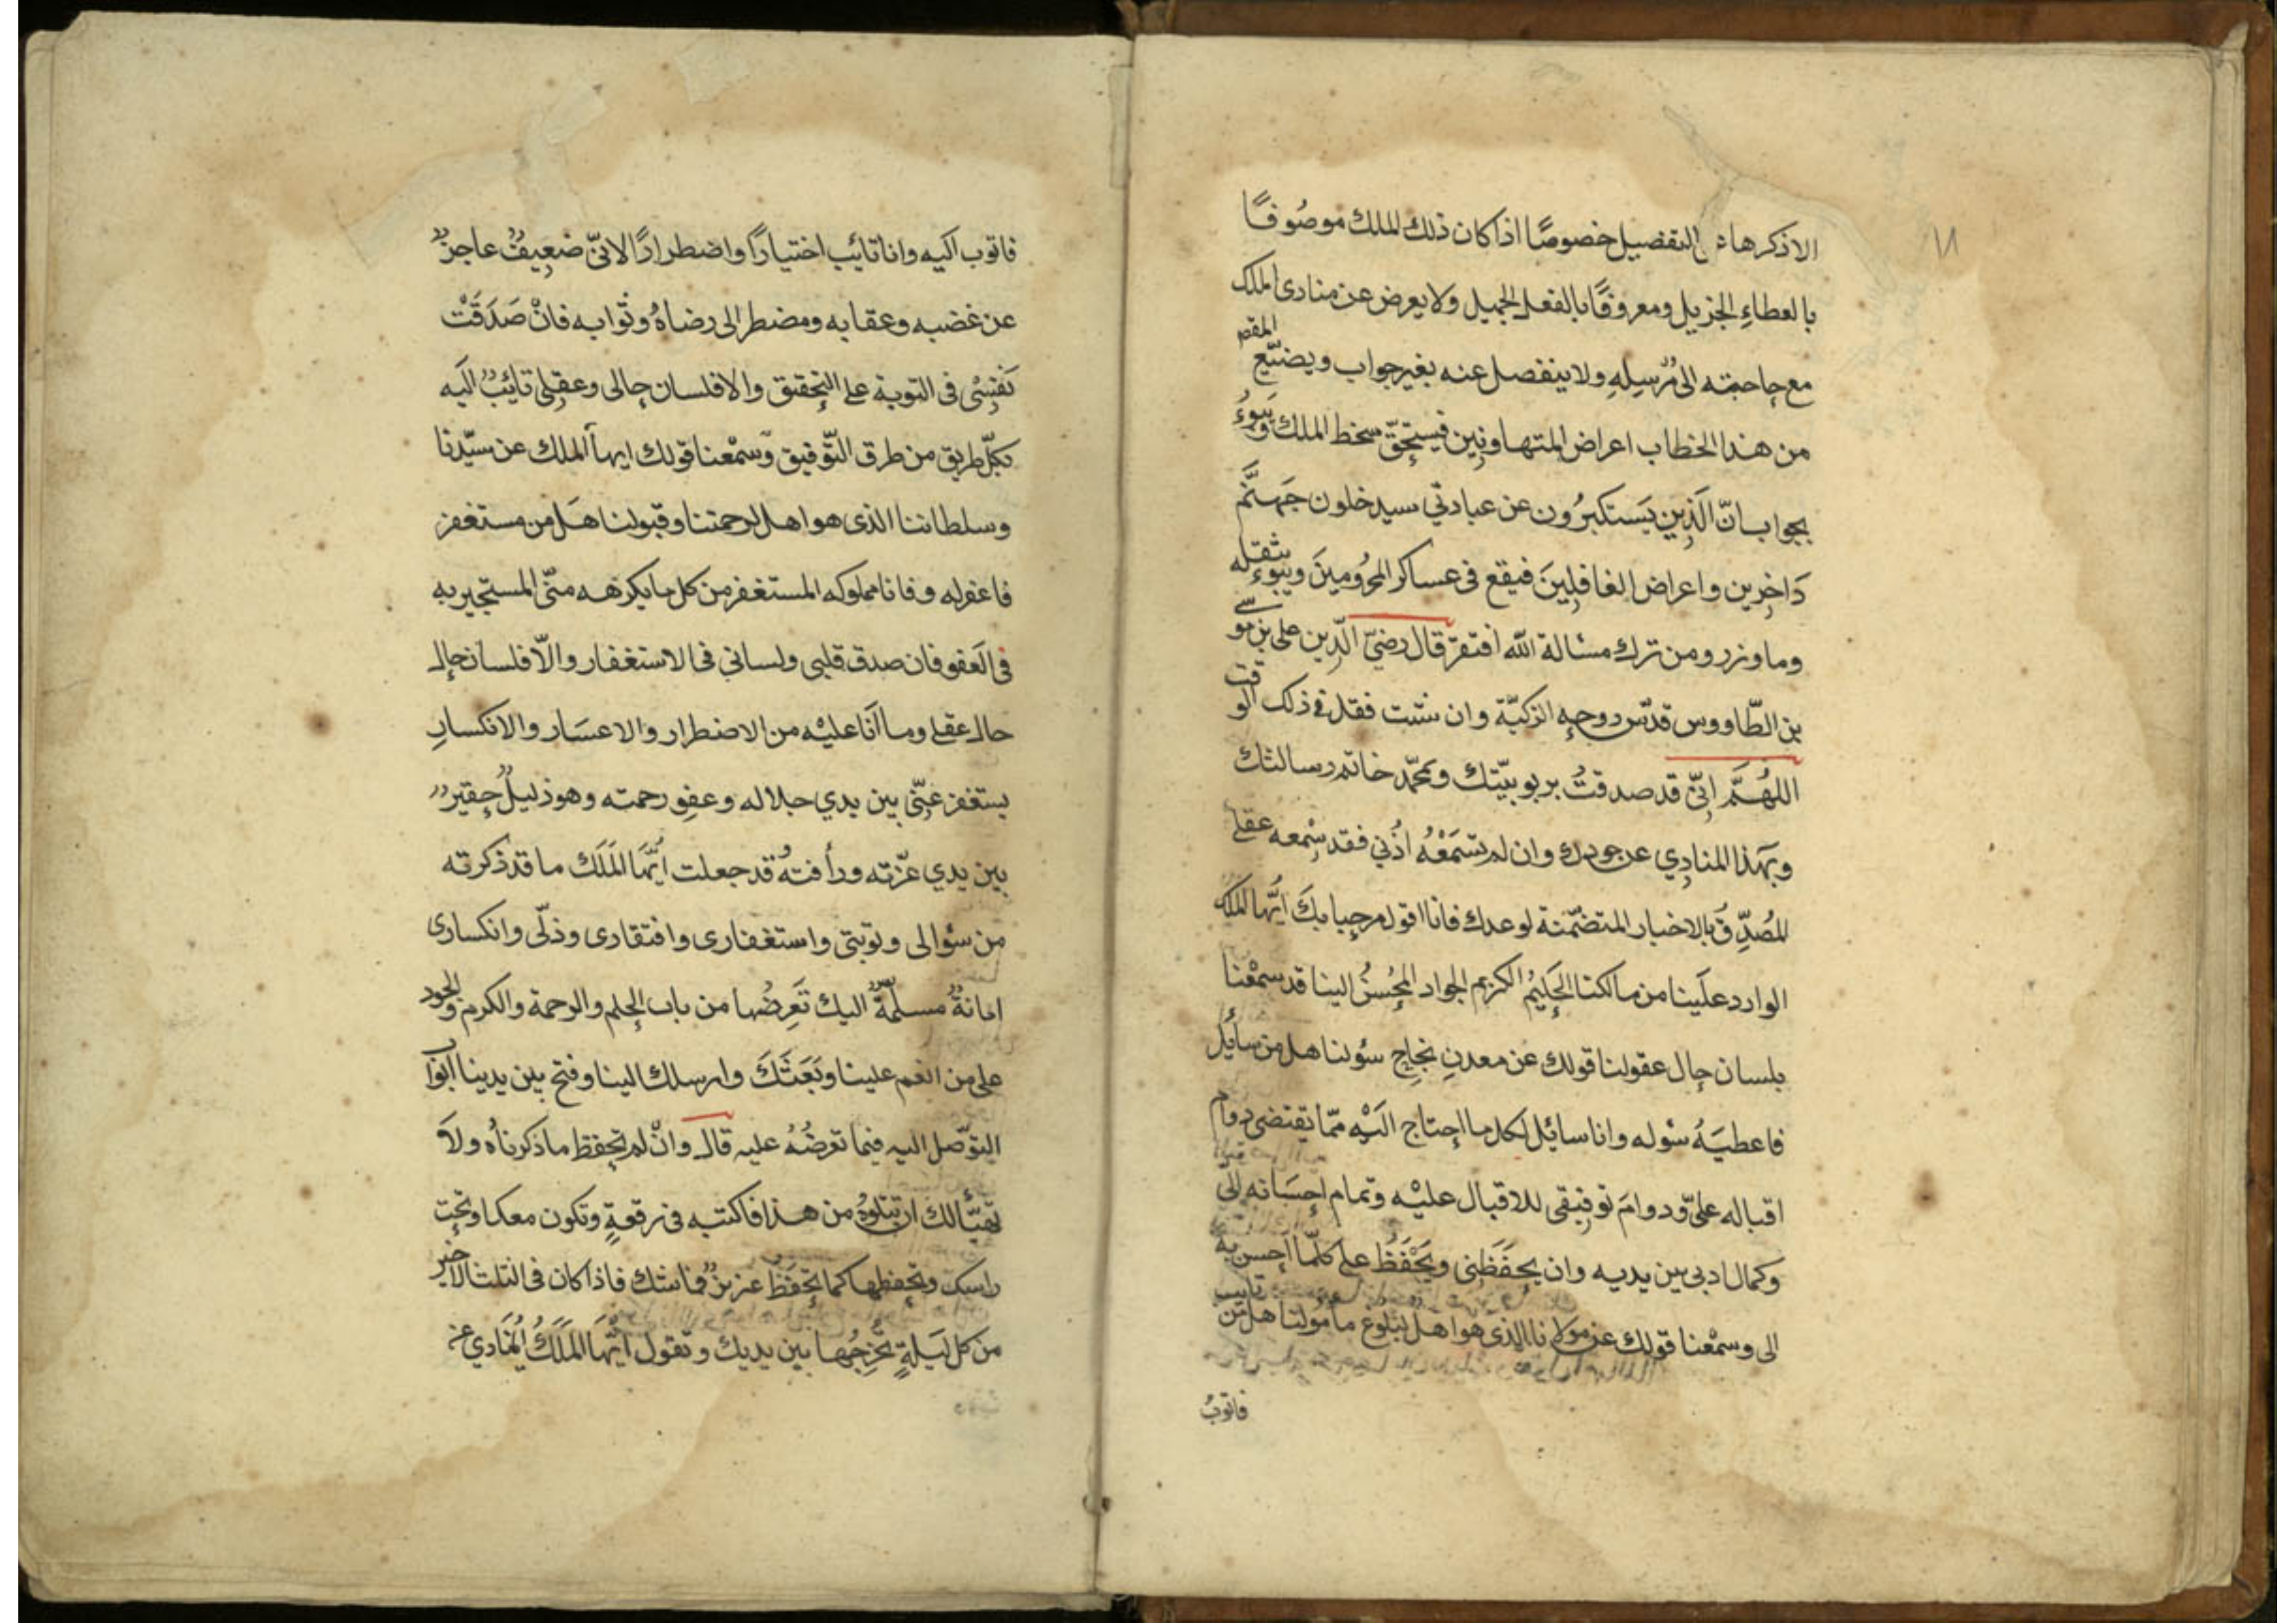 ١٨
الا ذكرها على التفضيل خصوصًا اذا كان ذلك الملك موصُوفًا
بالعطاءِ الجزيل ومعروفًا بالفعل الجميل ولا يعرض عن منادى الملك
مع حاجته الى مُرسِلِهِ ولا ينفصل عنه بغير جواب ويضيّع المقصـ
من هذا الخطاب اعراض المتهاونِين فيستحِقّ سخط الملك وَيَبوءُ
بجواب انّ الَّذِين يَستكبرُون عن عبادتي سيدخلون جَهنَّم
دَاخِرين واعراض الغافِلِينَ فيقع فى عساكر المحرُومِينَ ويبوءُ بثقله
وما وزر ومن ترك مسالة اللّه افتقرّ قال رضيّ الدِّين على بن موسى
بن الطّاووس قدّس روحِهِ الزكيّة وان شئت فقل فى ذلك الوقت
اللهُمَّ اِنّي قد صدقتُ بربوبيّتك وبمحمّد خاتم رسالتك
وبهذا المنادِي عن جودك وان لم تسمَعْهُ اُذُني فقد سِمْعه عقلى
المُصَدِّقُ بالاخبار المتضمّنة لوعدك فانا اقول مرحِبا بكَ ايُّها الملك
الوارد علَينا من مالكنا الحَلِيْم الكريم الجواد المُحِسنُ الينا قد سمْعْنا
بلسان حِال عقولنا قولك عن معدنِ نجِاحِ سُولنا هل من سائِل
فاعطيَهُ سُوله وانا سائل لكل ما احِتاج الَيْهِ ممّا يقتضى دوام
اقباله علىّ ودوامَ توفِيقى للاقبال عليْه وتمام احِسَانه الىّ
وكمال ادبى بين يديه وان يحِفَظَنِى ويَحْفَظَ على كلّما احِسن به
الى وسمْعنا قولك عن مولانا الذى هو اهل لبُلوغ مامُولنا هل من تايب
فاتوبُ
فاتوب اليه وانا تائب اختيارًا واضطرارًا لانّى ضعِيفٌ عاجزٌ
عن غضبه وعقابه ومضطر الى رضاهُ وثوابه فانْ صَدَقَتْ
نَفِسْى فى التوبة على التحِقيق والا فلسان حِالى وعقِلى تائِبٌ الَيه
بكلّ طريق من طرق التّوفيق وّسمْعنا قولك ايها الملك عن سيّدنا
وسلطاننا الذى هو اهل لرحمتنا وقبولنا هَل من مستغفر
فاغفر له وفانا مملوكه المستغفر من كل ما يكرهه منّى المستجير به
فى العَفو فان صدق قلبى ولسانى فى الاستغفار والّا فلسان حِال
حال عقلى وما انَا عليْه من الاضطرار والاعسَار والانكسارِ
يستغفر عِنّى بين يدي جلاله وعفِو رحمته وهو ذليلٌ حِقير
بين يدي عزّته ورأفتهُ قد جعلت ايُّها المَلَك ما قد ذكرته
من سُؤالى وتوبتى واستغفارى وافتقادى وذلّى وانكسارى
امانةٌ مسلّمةٌ اليك تَعرِضُها من باب الحِلم والرحمة والكرم والجود
على من انعم علينا وبَعَثَكَ وارسلك الينا وفتح بين يدينا ابواب
التوّصل اليه فيما تعرضُهُ عليه قال وانْ لم تحِفظ ما ذكرناه ولا
تهيّأ لك ان تتلوهُ من هذا فاكتبه فى رقعةٍ وتكون معك او تحِت
راسك وتحِفظها كما تحِفَظ عزيز قماشك فاذا كان فى الثلث الاخير
من كل لَيلةٍ تُخرِجُها بين يديك وتقول ايُّها المَلَكُ اُلمنَادِي عن